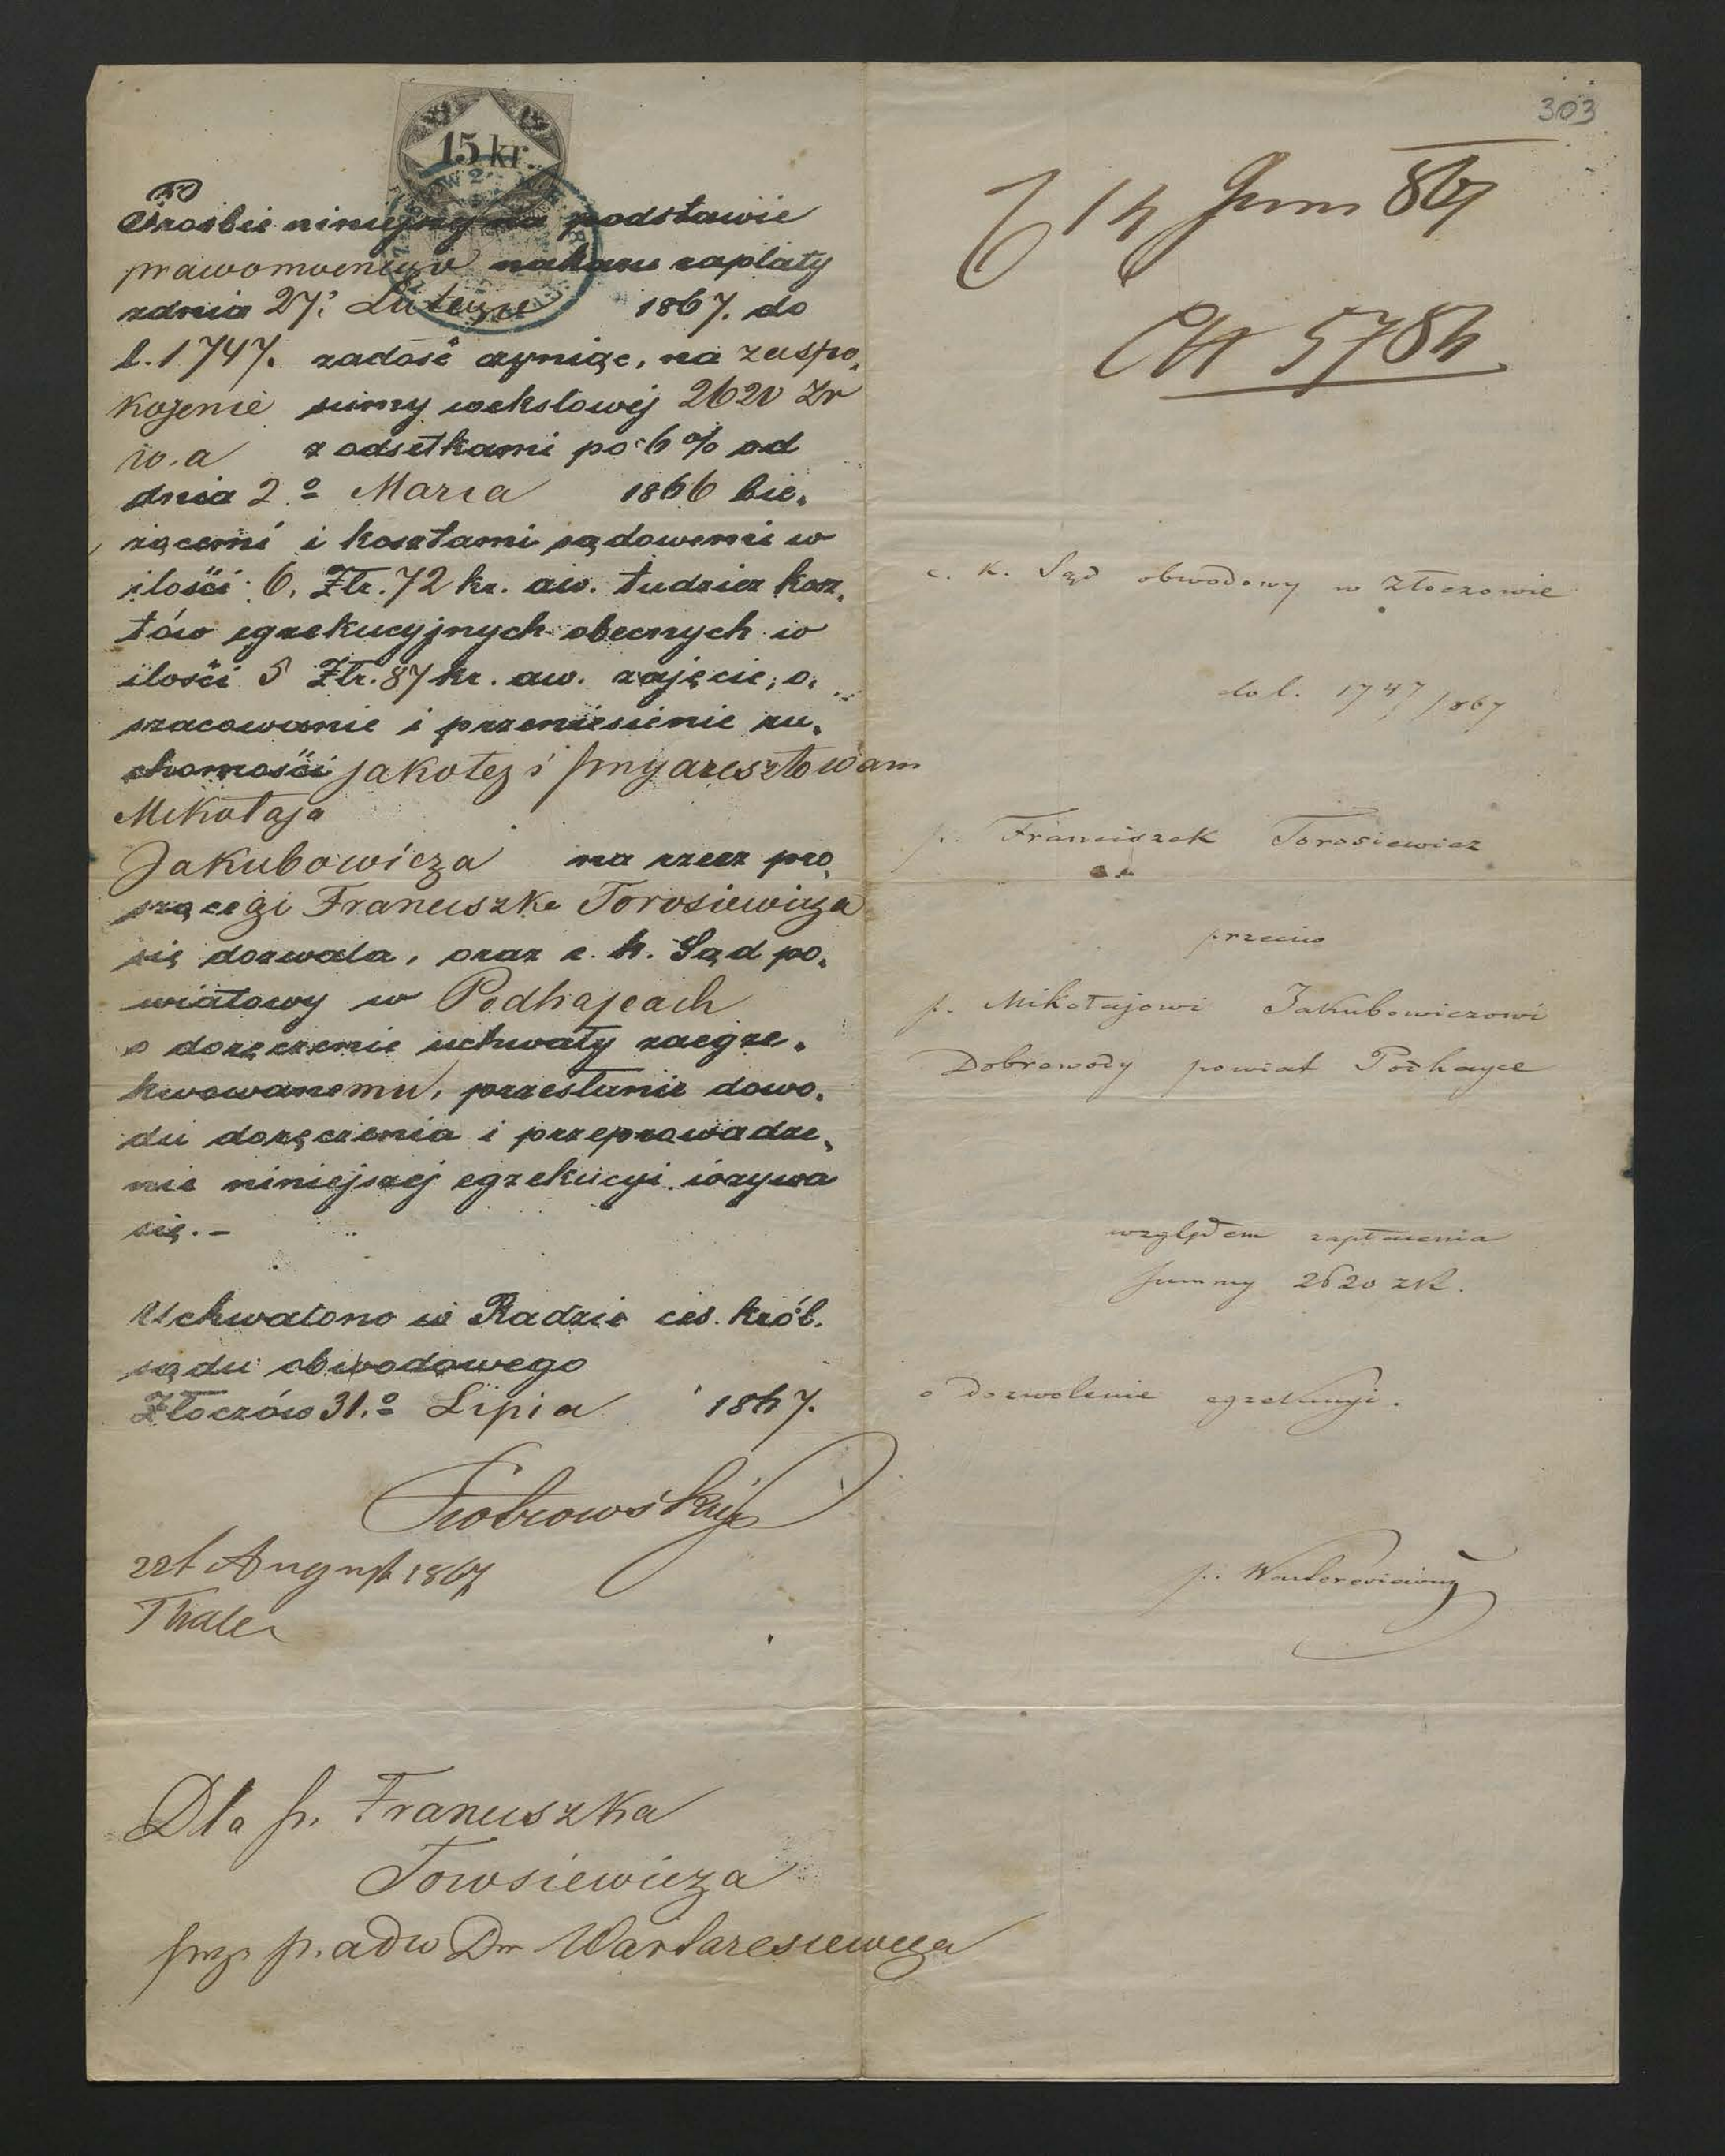 303
15 kr.
Prośbie niniejszej na podstawie
prawomocnego nakazu zapłaty
z dnia 27. Lutego 1867. do
l. 1747. zadość czyniąc, na zaspo-
kojenie sumy wekslowej 2620 Zr
w.a z odsetkami po 6% od
dnia 2º Marca 1866 bie-
żącemi i kosztami sądowemi w
ilości 6. Złr. 72 kr. aw. tudzież kosz-
tów egzekucyjnych obecnych w
ilości 5 Złr. 87 kr. aw. zajęcie, o-
szacowanie i przeniesienie ru-
chomości jakoteż i przyaresztowan
Mikołaja
Jakubowicza na rzecz pro-
szącego Franciszka Torosiewicza
się dozwala, oraz c. k. Sąd po-
wiatowy w Podhajcach
o doręczenie uchwały zaegze-
kwowanemu, przesłanie dowo-
du doręczenia i przeprowadze-
nie niniejszej egzekucyi wzywa
się. –
Uchwalono w Radzie ces. król.
sądu obwodowego
Złoczów 31.º Lipca 1867.
August 1867
Thaler
Dla p. Franciszka
Torosiewicza
przez p. adw Dr Wartaresiewicza
14 Juni 867
5784
c. k. Sąd obwodowy w Złoczowie
do l. 1747/867
p. Franciszek Torosiewicz
przeciw
p. Mikołajowi Jakubowiczowi
Dobrowody powiat Podhayce
względem zapłacenia
summy 2620 zR.
o dozwolenie egzekucyi.